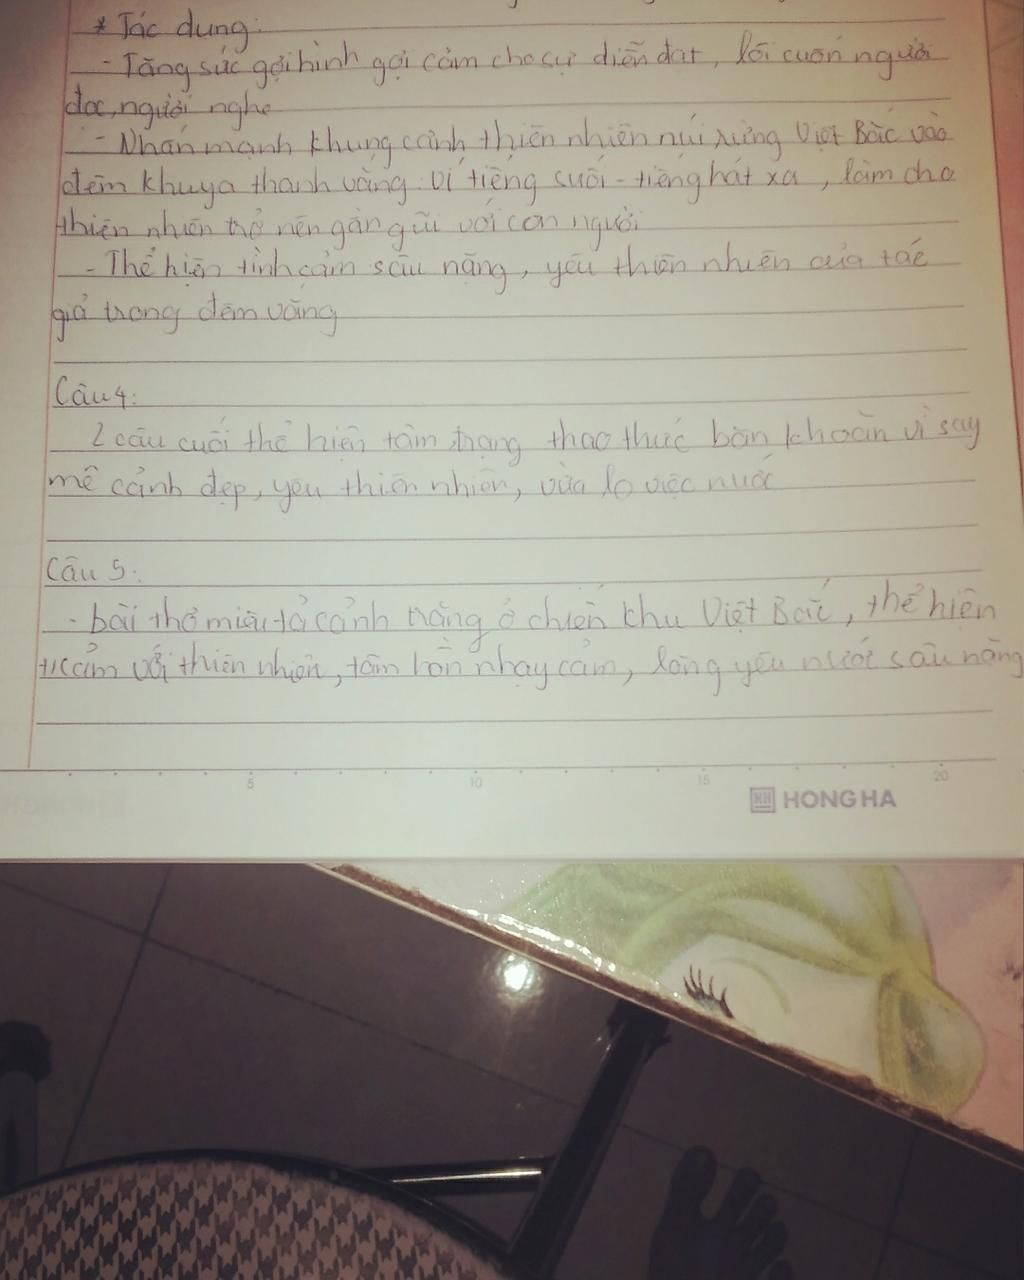 * Tác dụng:
- Tăng sức gợi hình gợi cảm cho sự diễn đạt, lôi cuốn người
đọc, người nghe
- Nhấn mạnh khung cảnh thiên nhiên núi rừng Việt Bắc vào
đêm khuya thanh vắng: ví tiếng suối - tiếng hát xa, làm cho
thiên nhiên trở nên gần gũi với con người
- Thể hiện tình cảm sâu nặng, yêu thiên nhiên của tác
giả trong đêm vắng
Câu 4:
2 câu cuối thể hiện tâm trạng thao thức băn khoăn vì say
mê cảnh đẹp, yêu thiên nhiên, vừa lo việc nước
Câu 5:
- bài thơ miêu tả cảnh trăng ở chiến khu Việt Bắc, thể hiện
t/cảm với thiên nhiên, tâm hồn nhạy cảm, lòng yêu nước sâu nặng
5 10 15 20
HH HONG HA